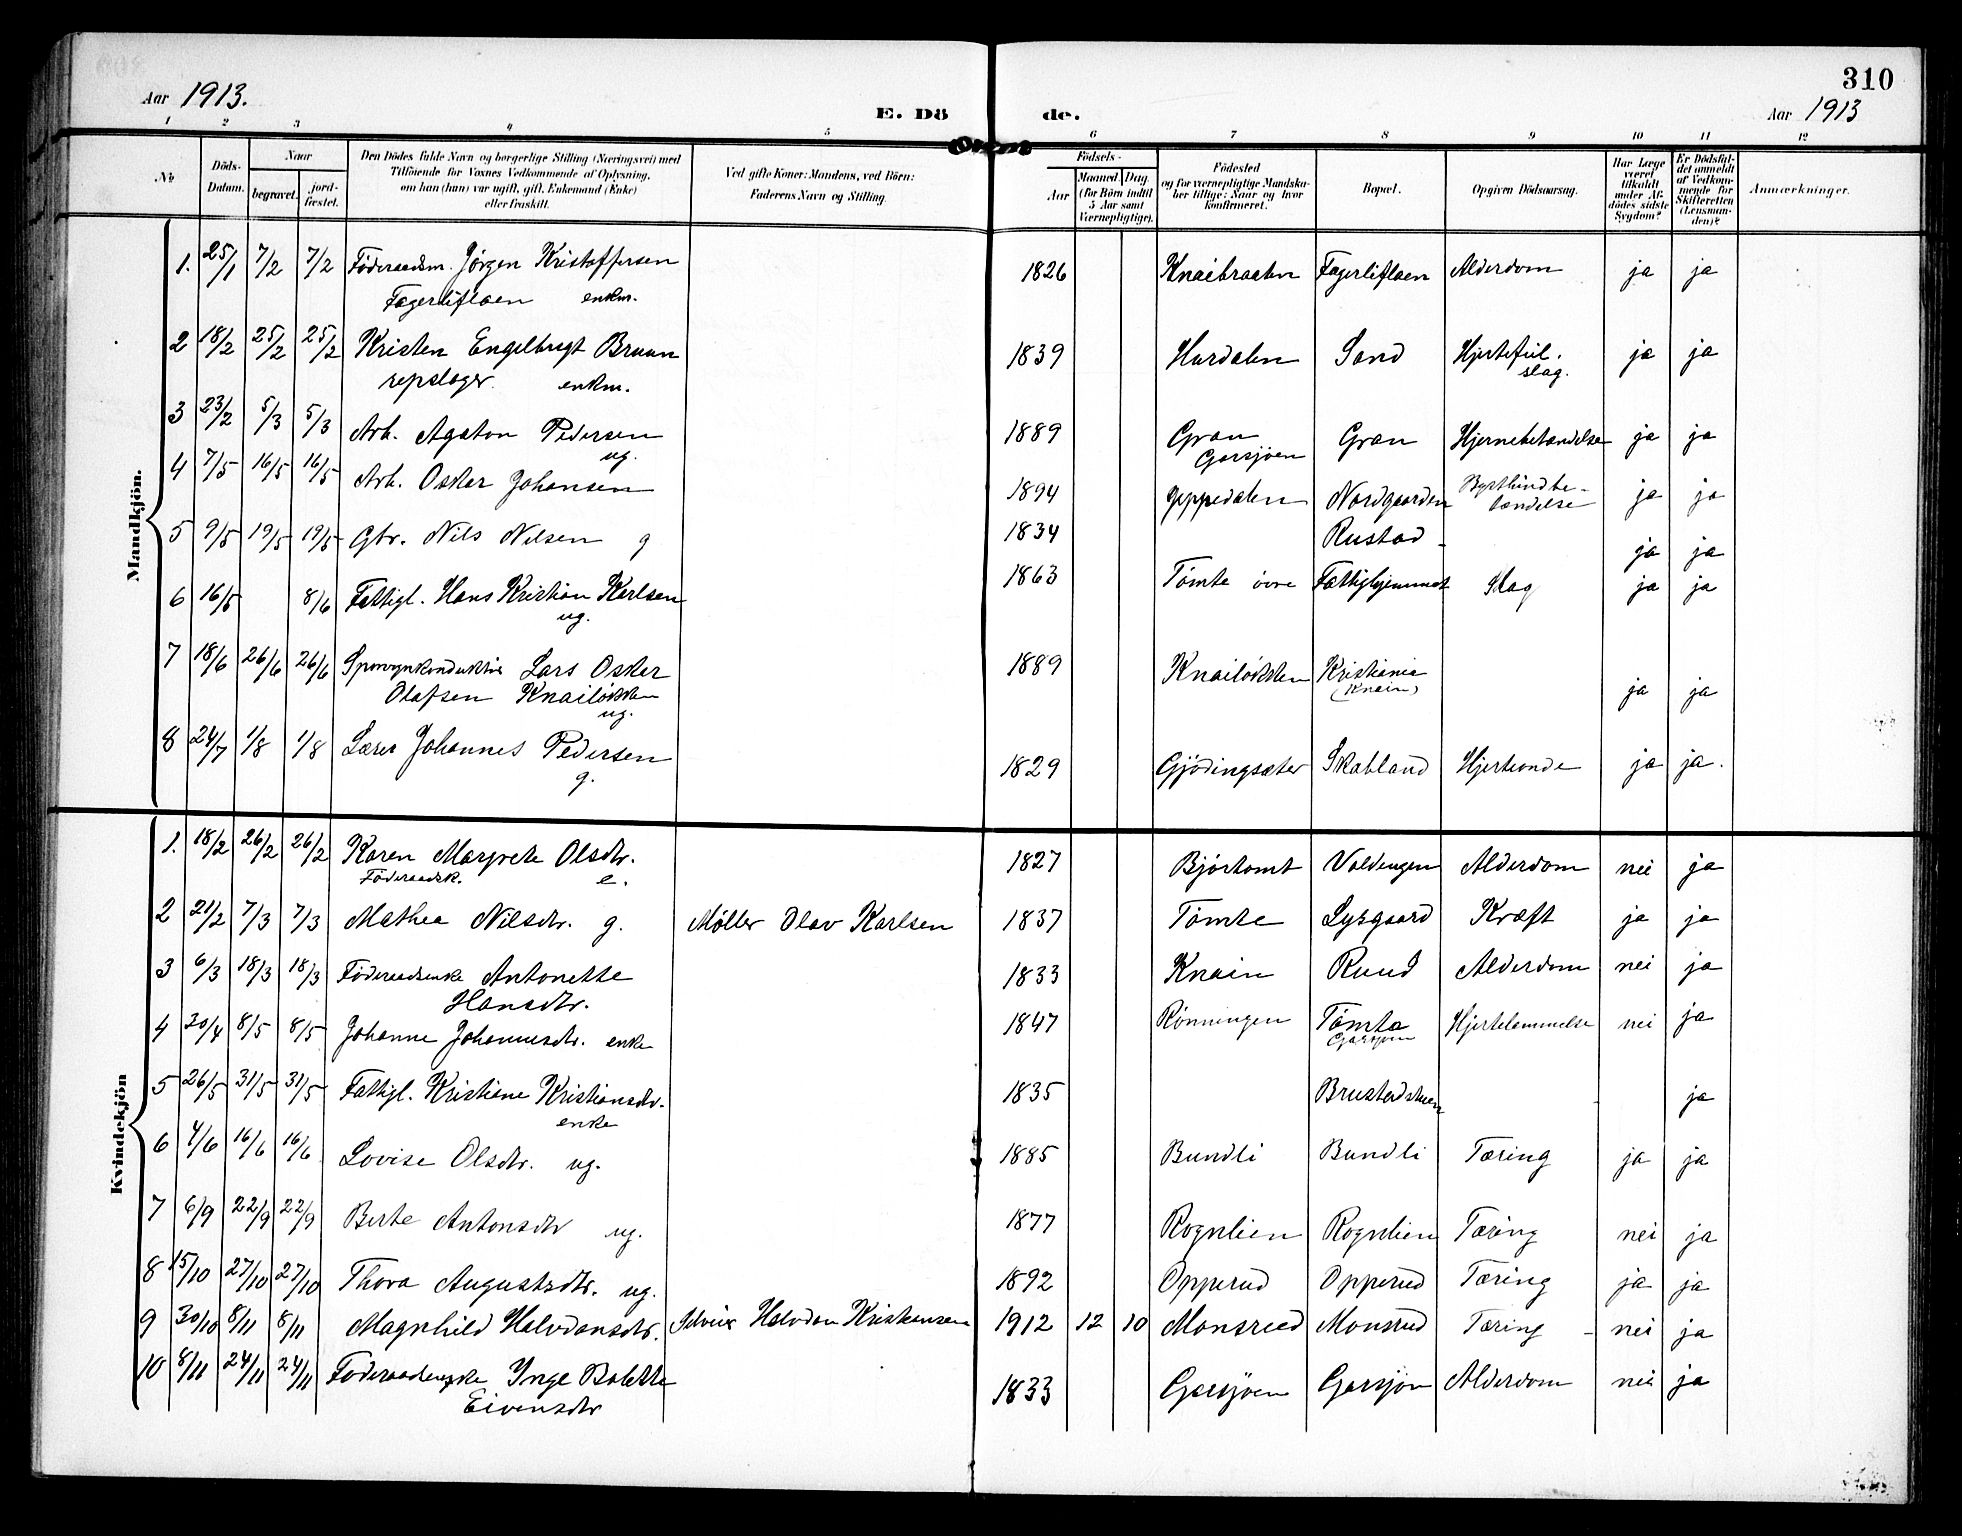 310
Aar 1913.
E. Dö de.
Aar 1913
1 2 3 4 5 6 7 8 9 10 11 12
No
Döds-Datum.
Naar
begravet.
jord-fæstet.
Den Dödes fulde Navn og borgerlige Stilling (Næringsvei) med
Tilföiende for Voxnes Vedkommende af Oplysning,
om han (hun) var ugift, gift, Enkemand (Enke)
eller fraskilt.
Ved gifte Koner: Mandens, ved Börn:
Faderens Navn og Stilling.
Födsels-
Aar
Maaned Dag
(for Börn indtil
5 Aar samt
Værnepligtige).
Födested
og for værnepligtige Mandska-
ber tillige: Naar og hvor
konfirmeret.
Bopæl.
Opgiven Dödsaarsag.
Har Læge
været
tilkaldt
under Af-
dödes sidste
Sygdom?
Er Dödsfal-
det anmeldt
af Vedkom-
mende for
Skifteretten
(Lensman-
den)?
Anmærkninger.
Mandkjön.
1. 25/1 7/2 7/2 Föderaadsm. Jörgen Kristoffersen 1826 Knaibraaten Fagerliflaen Alderdom ja ja
Fagerliflaen enkm.
2 18/2 25/2 25/2 Kristen Engelbregt Bruun 1839 Hurdalen Sand Hjertefeil. ja ja
repslager enkm. slag.
3 23/2 5/3 5/3 Arb. Agaton Pedersen 1889 Gran Gran Hjernebetændelse ja ja
ug. Garsjøen
4 7/5 16/5 16/5 Arb. Oskar Johansen 1894 Jeppedalen Nordgaarden Bysthindbe- ja ja
tændelse
5 9/5 19/5 19/5 Gbr. Nils Nilsen g 1834 Rustad - ja ja
6 16/5 8/6 Fattigl. Hans Kristian Karlsen 1863 Tömte övre Fattighjemmet Slag ja ja
ug.
7 18/6 26/6 26/6 Sporvognkonduktör Lars Oskar 1889 Knailökken Kristiania
Olafsen Knailökken (Knain) ja ja
ug.
8 24/7 1/8 1/8 Lærer Johannes Pedersen 1829 Gjödingsæter Skabland Hjerteonde ja ja.
g.
Kvindekjön
1. 18/2 26/2 26/2 Karen Margrete Olsdtr. 1827 Bjørtomt Valdengen Alderdom nei ja
Föderaadsk. e.
2 21/2 7/3 7/3 Mathea Nilsdtr. g. Møller Olav Karlsen 1837 Tömte Lysgaard Kræft ja ja
3 6/3 18/3 18/3 Föderaadsenke Antonette 1833 Knain Ruud Alderdom nei ja
Hansdtr.
4 30/4 8/5 8/5 Johanne Johannesdtr. enke 1847 Rönningen Tömta Hjertelammelse nei ja
Garsjøen
5 26/5 31/5 31/5 Fattigl. Kristiane Kristiansdtr. 1835 Brustadstuen ja
enke
6 4/6 16/6 16/6 Lovise Olsdtr. ug. 1885 Bundli Bundli Tæring ja ja
7 6/9 22/9 22/9 Berte Antonsdtr ug. 1877 Rognlien Rognlien Tæring nei ja
8 15/10 27/10 27/10 Thora Augustsdtr. ug. 1892 Opperud Opperud Tæring ja ja
9 30/10 8/11 8/11 Magnhild Halvdansdtr. Halvdan Kristiansen 1912 12 10 Monsrud Monsrud Tæring - nei ja
10 8/11 24/11 24/11 Föderaadsenke Inge Bolette 1833 Garsjøen Garsjøn Alderdom nei ja
Eivensdtr